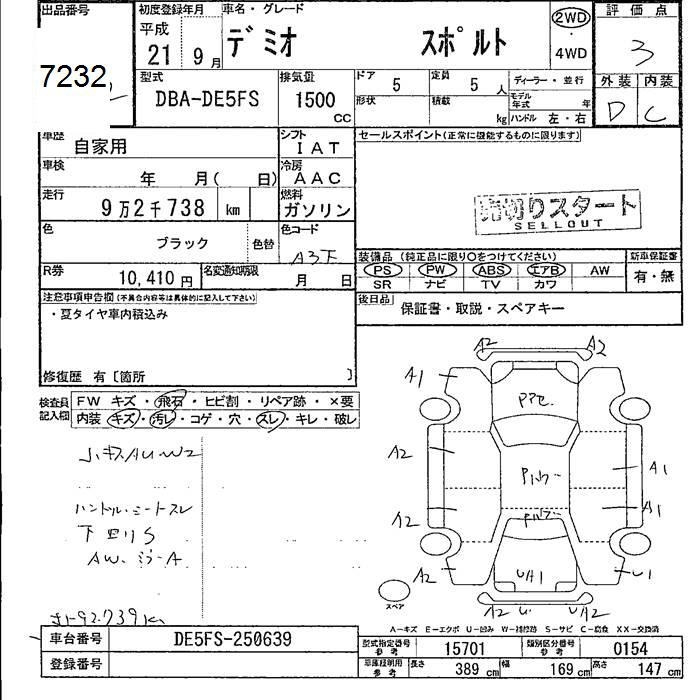 出品番号 初度登録年月 車名・グレード 2WD 評価点
平成 21 9月 デミオ スポルト ・ 3
7232 4WD
型式 排気量 ドア 5 定員 5人 ディーラー・並行 外装 内装
DBA-DE5FS 1500cc 形状 積載 kg モデル年式 年 D C
ハンドル 左・右
車歴 自家用 シフト IAT セールスポイント(正常に機能するものに限ります)
車検 年 月( 日) 冷房 AAC
走行 9万2千738 km 燃料 ガソリン 売切りスタート
SELLOUT
色 ブラック 色替 色コード A3F
装備品(純正品に限り○をつけてください) 新車保証書
R券 10,410円 名変通知期限 月 日 PS PW ABS エアB AW 有・無
SR ナビ TV カワ
注意事項申告欄(不具合内容等は具体的に記入して下さい) 後日品 保証書・取説・スペアキー
・夏タイヤ車内積込み
修復歴 有〔箇所 〕
検査員記入欄 FW キズ・飛石・ヒビ割・リペア跡・×要
内装 キズ・汚レ・コゲ・穴・スレ・キレ・破レ
小キズAUW2
ハンドル・シートスレ
下回りS
AW・ミラーA
A2 A2
A1
A2 A1
A2 A1
A2 UA1 U1
スペア
A2 U UA2
A-キズ E-エクボ U-凹み W-補修跡 S-サビ C-腐食 XX-交換済
車台番号 DE5FS-250639 型式指定番号 参考 15701 類別区分番号 参考 0154
登録番号 車庫証明用 参考 長さ 389cm 幅 169cm 高さ 147cm